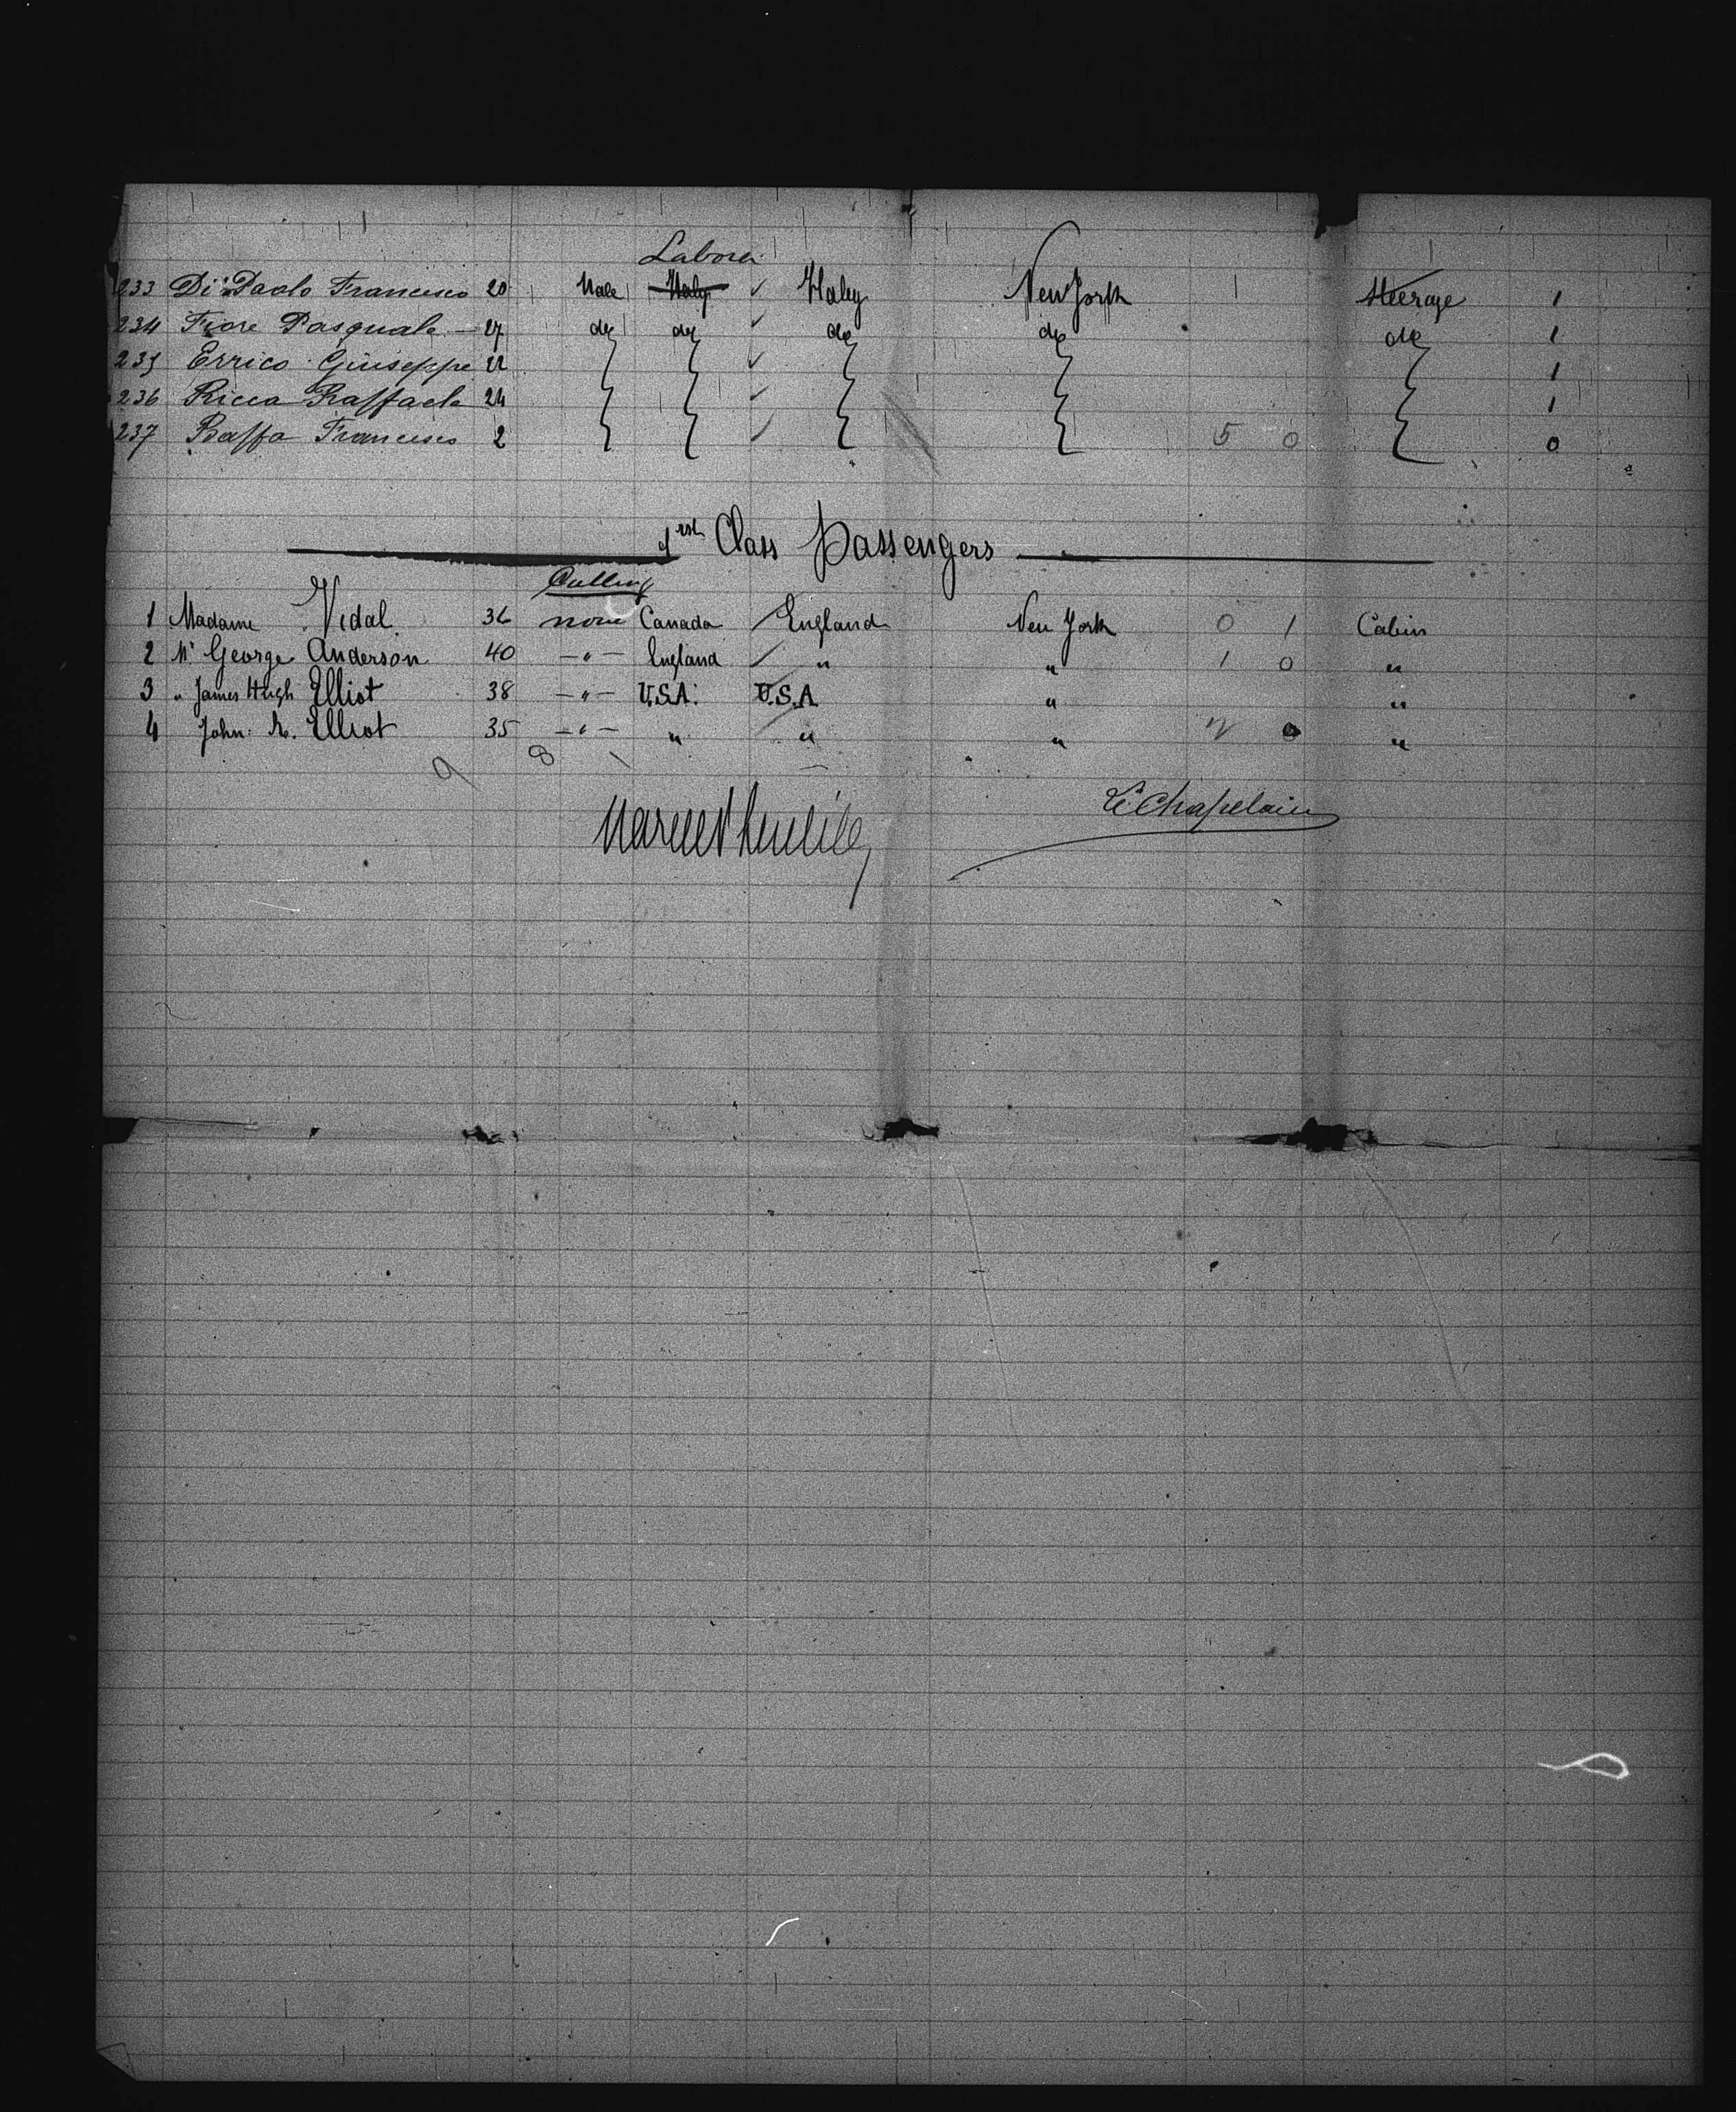 Laborer
233 Di Paolo Francesco 20 Male Italy ✓ Italy New York Steerage 1
234 Fiore Pasquale - 27 do do ✓ do do do 1
235 Errico Giuseppe 22 ✓ 1
236 Ricca Raffaele 24 ✓ 1
237 Baffa Francesco 2 ✓ 5 0 0
1rst Class Passengers
Calling
1 Madame Vidal 36 none Canada / England New York 0 1 Cabin
2 Mr George Anderson 40 -"- England / " " 1 0 "
3 " James Hugh Elliot 38 -"- U.S.A. U.S.A " "
4 John. R. Elliot 35 -"- " " " 2 0 "
9 8 1
Le Chapelain